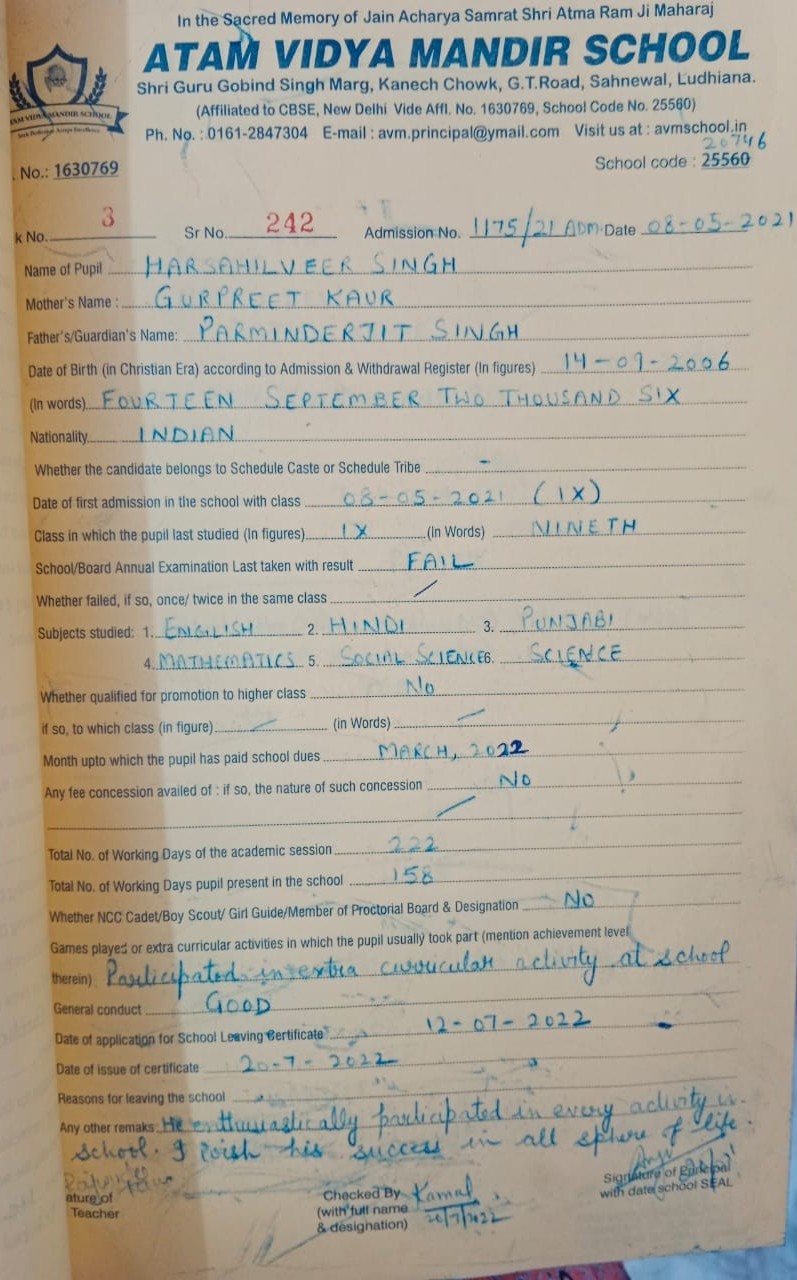 In the Sacred Memory of Jain Acharya Samrat Shri Atma Ram Ji Maharaj
ATAM VIDYA MANDIR SCHOOL
Shri Guru Gobind Singh Marg, Kanech Chowk, G.T.Road, Sahnewal, Ludhiana.
(Affiliated to CBSE, New Delhi Vide Affl. No. 1630769, School Code No. 25560)
Ph. No. : 0161-2847304 E-mail : avm.principal@ymail.com Visit us at : avmschool.in
20746
. No.: 1630769 School code : 25560
k No. 3 Sr No. 242 Admission No. 1175/21 ADM Date 08-05-2021
Name of Pupil HARSAHILVEER SINGH
Mother's Name : GURPREET KAUR
Father's/Guardian's Name: PARMINDERJIT SINGH
Date of Birth (in Christian Era) according to Admission & Withdrawal Register (In figures) 14-09-2006
(In words) FOURTEEN SEPTEMBER TWO THOUSAND SIX
Nationality INDIAN
Whether the candidate belongs to Schedule Caste or Schedule Tribe -
Date of first admission in the school with class 08-05-2021 (IX)
Class in which the pupil last studied (In figures) IX (In Words) NINETH
School/Board Annual Examination Last taken with result FAIL
Whether failed, if so, once/ twice in the same class /
Subjects studied: 1. ENGLISH 2. HINDI 3. PUNJABI
4. MATHEMATICS 5. SOCIAL SCIENCE 6. SCIENCE
Whether qualified for promotion to higher class No
if so, to which class (in figure) / (in Words) /
Month upto which the pupil has paid school dues MARCH, 2022
Any fee concession availed of : if so, the nature of such concession NO
/
Total No. of Working Days of the academic session 222
Total No. of Working Days pupil present in the school 158
Whether NCC Cadet/Boy Scout/ Girl Guide/Member of Proctorial Board & Designation No
Games played or extra curricular activities in which the pupil usually took part (mention achievement level
therein) Participated in extra curricular activity at school
General conduct GOOD
Date of application for School Leaving Certificate 12-07-2022
Date of issue of certificate 20-7-2022
Reasons for leaving the school
Any other remaks He enthusiastically participated in every activity in
school. I wish his success in all sphere of life.
ature of Checked By Kamal Signature of Principal
Teacher (with full name 20/7/2022 with date school SEAL
& designation)